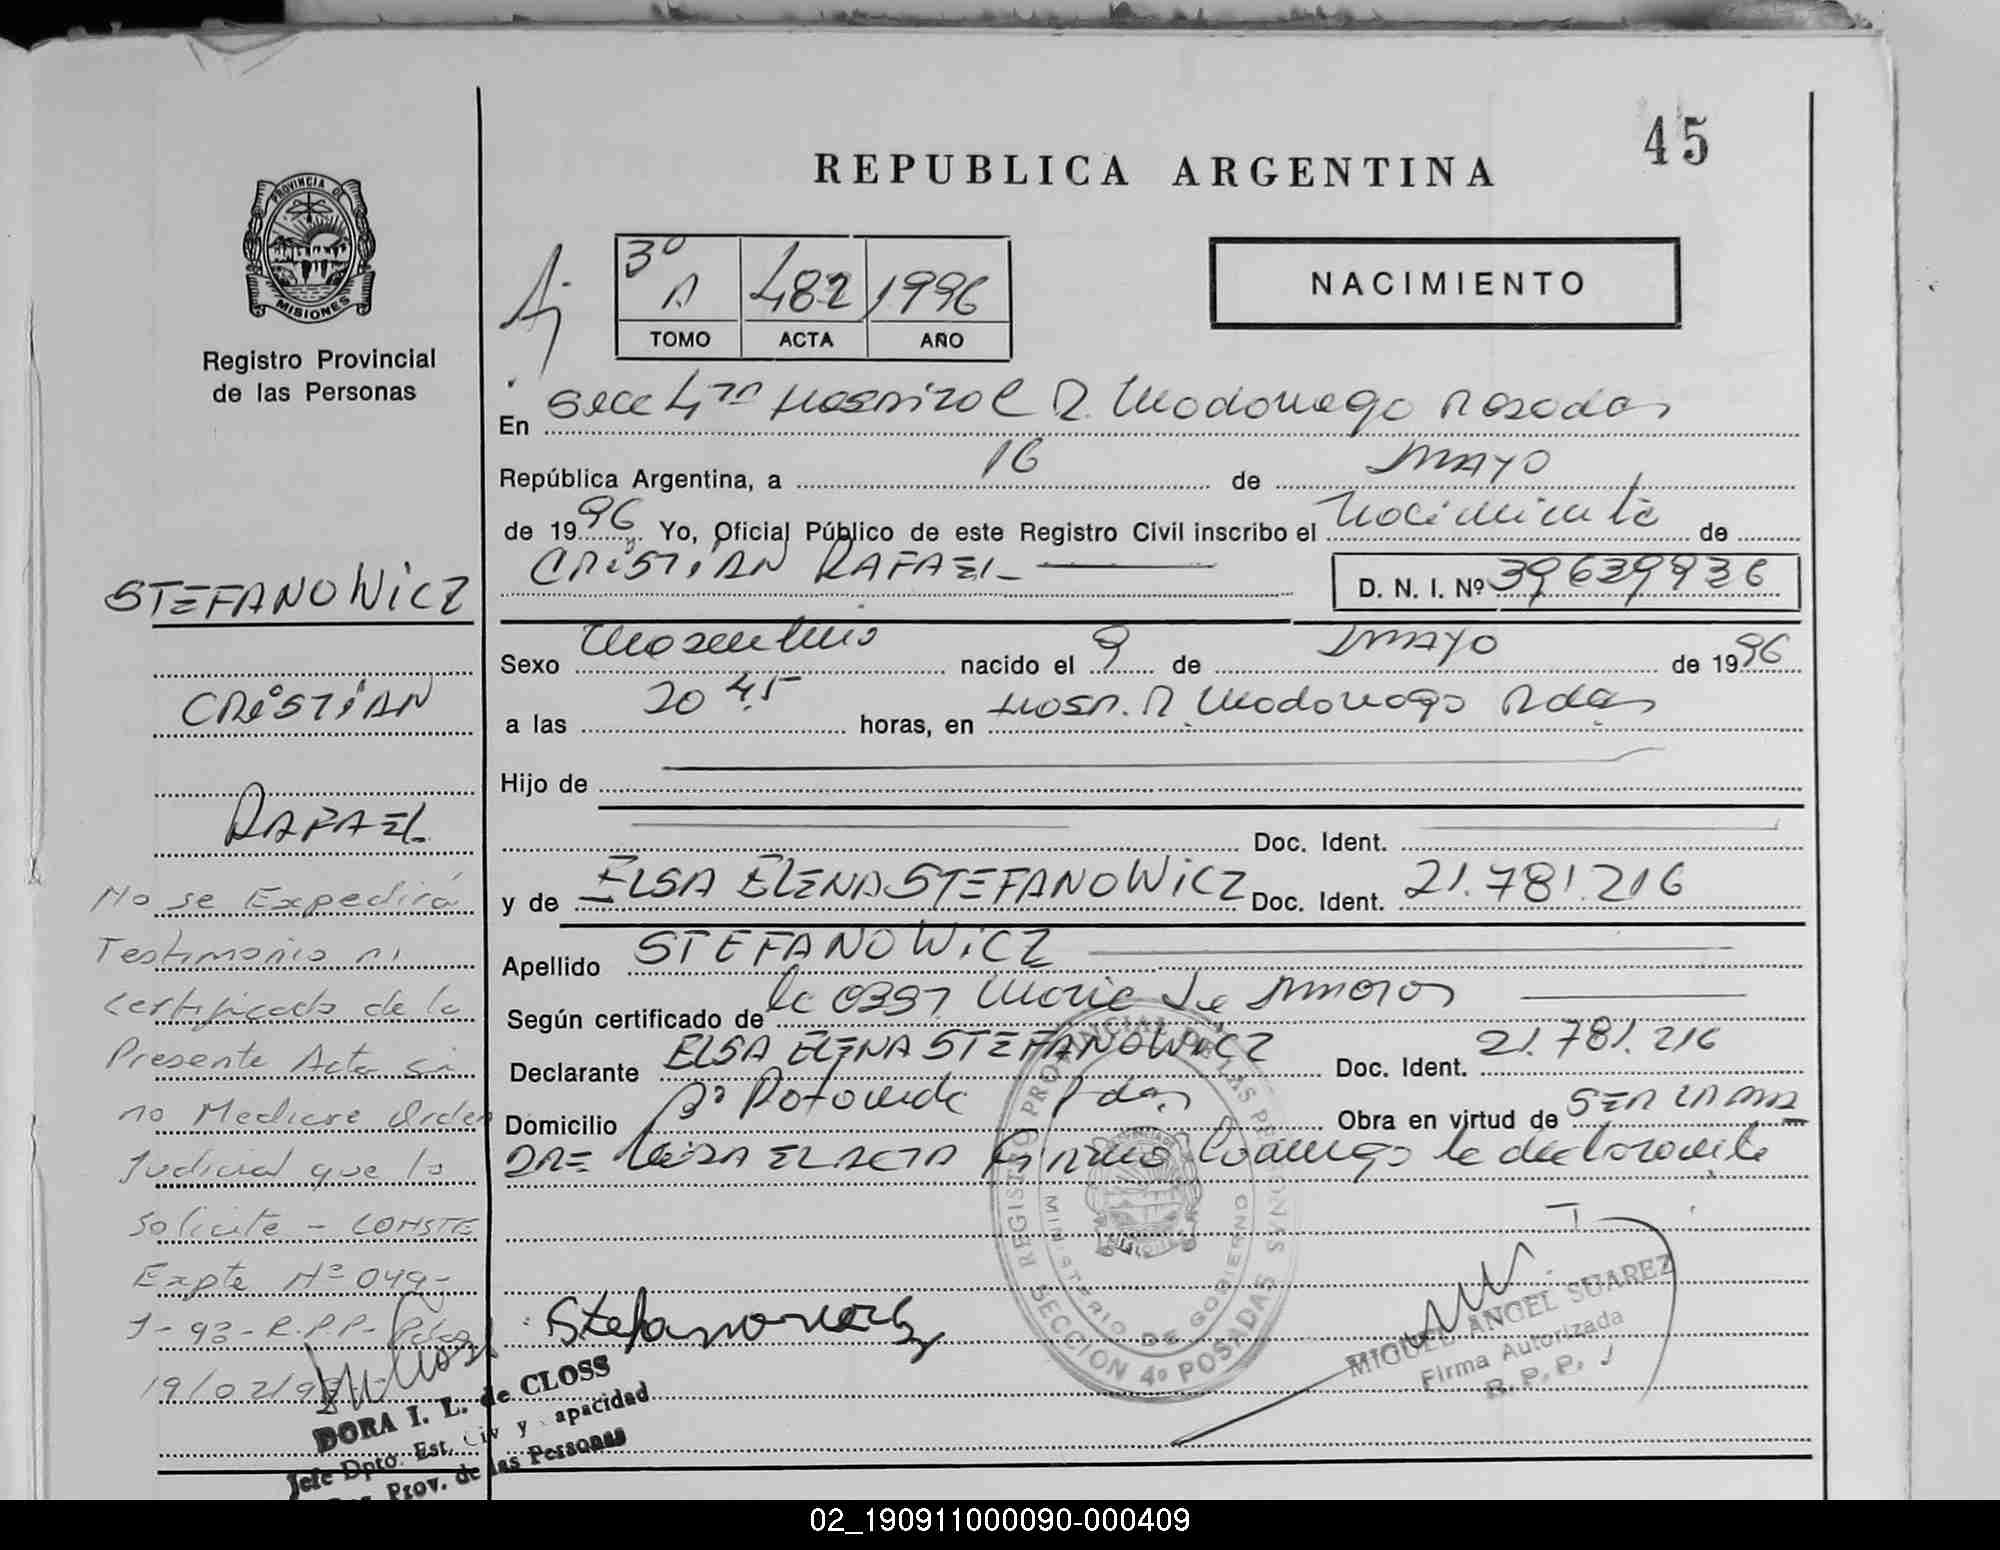 45
REPUBLICA ARGENTINA
PROVINCIA DE
MISIONES
Registro Provincial
de las Personas
3º A 482 1996
TOMO ACTA AÑO
NACIMIENTO
En Secc 4ta Hospital R. Madariaga Posadas
República Argentina, a 16 de MAYO
de 1996 Yo, Oficial Público de este Registro Civil inscribo el Nacimiento de
CRiSTiAN RAFAEL
D. N. I. Nº 39639936
Sexo Masculino nacido el 9 de MAYO de 1996
a las 20 45 horas, en Hosp. R. Madariaga Pdas
Hijo de
Doc. Ident.
y de ELSA ELENA STEFANOWiCZ Doc. Ident. 21.781.216
Apellido STEFANOWiCZ
Según certificado de la 0397 Maria de
Declarante ELSA ELENA STEFANOWiCZ Doc. Ident. 21.781.216
Domicilio Bº Pdas Obra en virtud de SER LA MA
DRE Leida EL ACTA Firma Conmigo la declarante
STEFANOWiCZ
CRiSTiAN
RAFAEL
No se Expedirá
Testimonio ni
certificado de la
Presente Acta si
no Mediare Orden
Judicial que lo
solicite - CONSTE
Expte Nº 049-
J-93-R.P.P- Pdas
19/02/98
DORA I. L. de CLOSS
Jefe Dpto. Est. Civ y apacidad
Prov. de las Personas
Stefanowicz
REGISTRO PROVINCIAL DE LAS PERSONAS
MINISTERIO DE GOBIERNO
SECCION 4º POSADAS
MIGUEL ANGEL SUAREZ
Firma Autorizada
R. P. P. J
02_190911000090-000409